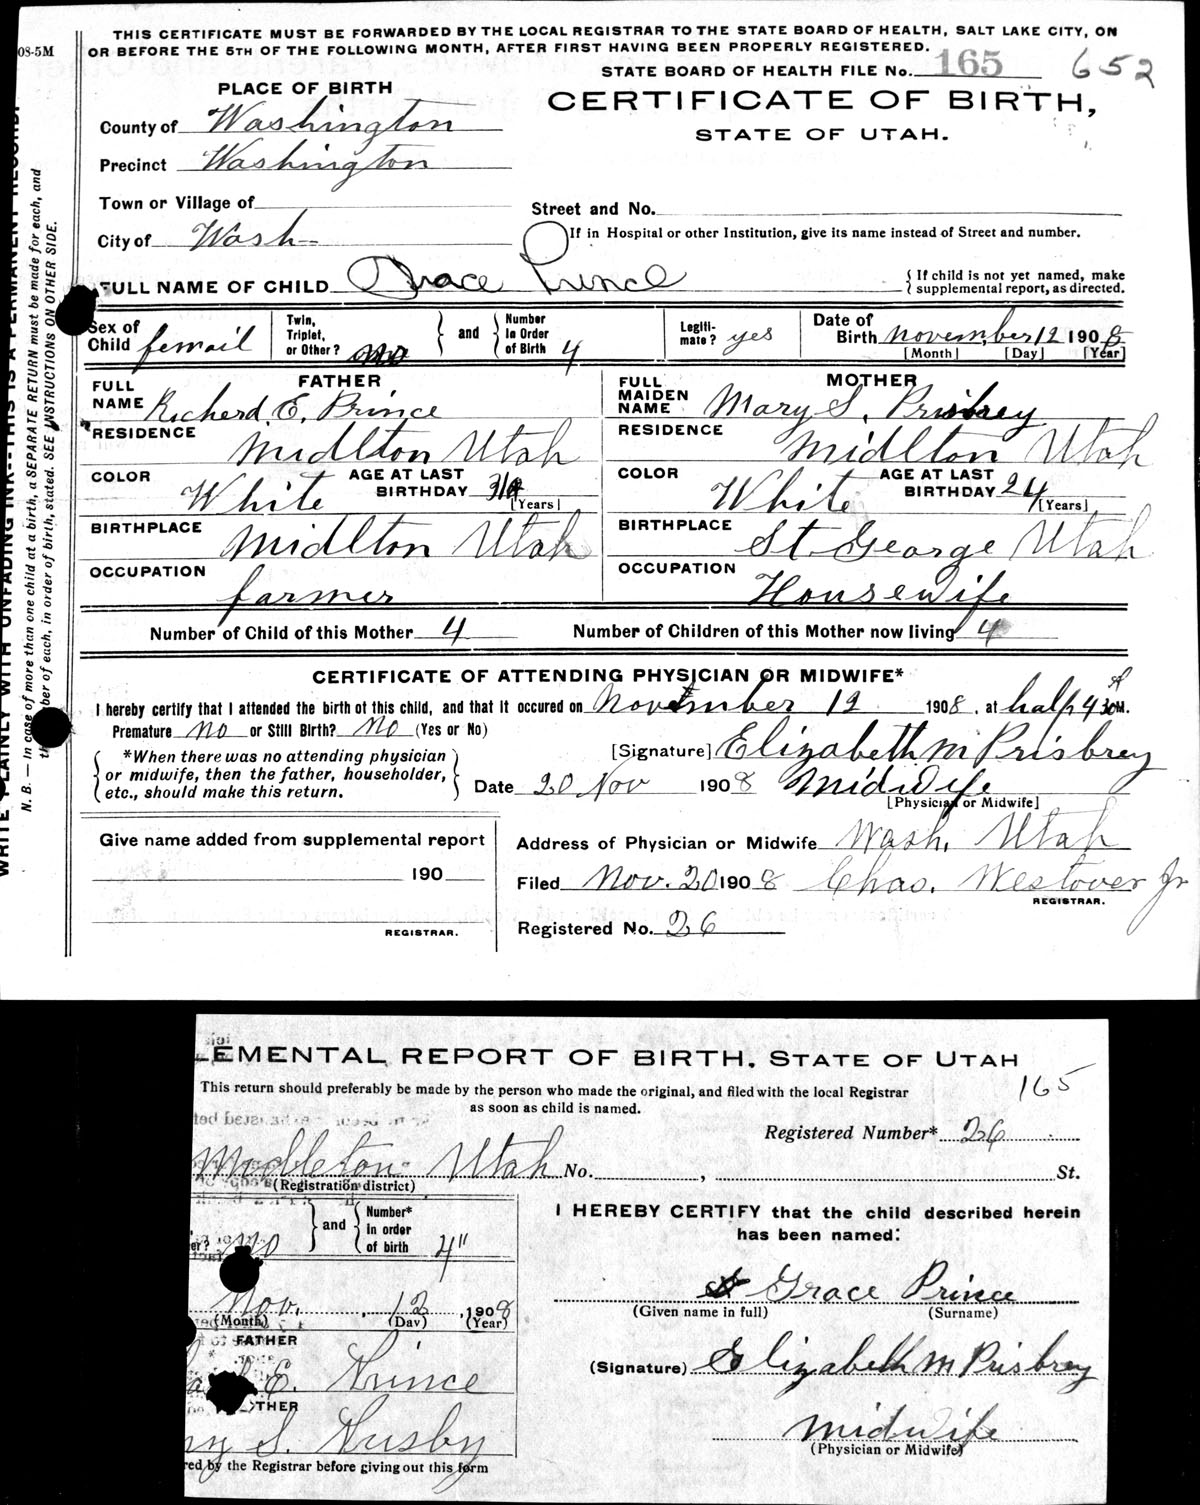 THIS CERTIFICATE MUST BE FORWARDED BY THE LOCAL REGISTRAR TO THE STATE BOARD OF HEALTH, SALT LAKE CITY, ON
OR BEFORE THE 5TH OF THE FOLLOWING MONTH, AFTER FIRST HAVING BEEN PROPERLY REGISTERED.
08-5M
STATE BOARD OF HEALTH FILE No. 165 652
PLACE OF BIRTH
CERTIFICATE OF BIRTH,
STATE OF UTAH.
County of Washington
Precinct Washington
Town or Village of
Street and No.
City of Wash
If in Hospital or other Institution, give its name instead of Street and number.
FULL NAME OF CHILD Grace Prince
If child is not yet named, make
supplemental report, as directed.
Sex of Child femail
Twin, Triplet, or Other? no
and Number In Order of Birth 4
Legiti- mate? yes
Date of Birth November 12 1908
[Month] [Day] [Year]
FATHER
FULL NAME Richerd E. Prince
RESIDENCE Midlton Utah
COLOR White AGE AT LAST BIRTHDAY [Years]
BIRTHPLACE Midlton Utah
OCCUPATION farmer
MOTHER
FULL MAIDEN NAME Mary S. Prisbrey
RESIDENCE Midlton Utah
COLOR White AGE AT LAST BIRTHDAY 24 [Years]
BIRTHPLACE St George Utah
OCCUPATION Housewife
Number of Child of this Mother 4 Number of Children of this Mother now living 4
CERTIFICATE OF ATTENDING PHYSICIAN OR MIDWIFE*
I hereby certify that I attended the birth of this child, and that it occured on November 12 1908, at half 4 30 A M.
Premature no or Still Birth? no (Yes or No)
*When there was no attending physician
or midwife, then the father, householder,
etc., should make this return.
[Signature] Elizabeth M Prisbrey
Date 20 Nov 1908 Midwife
[Physician or Midwife]
Give name added from supplemental report
190
REGISTRAR.
Address of Physician or Midwife Wash. Utah
Filed Nov. 20 1908 Chas. Westover Jr
REGISTRAR.
Registered No. 26
WRITE PLAINLY WITH UNFADING INK--THIS IS A PERMANENT RECORD.
N. B. — In case of more than one child at a birth, a SEPARATE RETURN must be made for each, and
the number of each, in order of birth, stated. SEE INSTRUCTIONS ON OTHER SIDE.
LEMENTAL REPORT OF BIRTH, STATE OF UTAH
This return should preferably be made by the person who made the original, and filed with the local Registrar
as soon as child is named.
165
Registered Number* 26
Middleton Utah No. , St.
(Registration district)
er? no and Number* in order of birth 4"
Nov. 12, 1908
(Month) (Day) (Year)
FATHER
E. Prince
OTHER
ry S. Prisby
red by the Registrar before giving out this form
I HEREBY CERTIFY that the child described herein
has been named:
Grace Prince
(Given name in full) (Surname)
(Signature) Elizabeth M Prisbrey
Midwife
(Physician or Midwife)